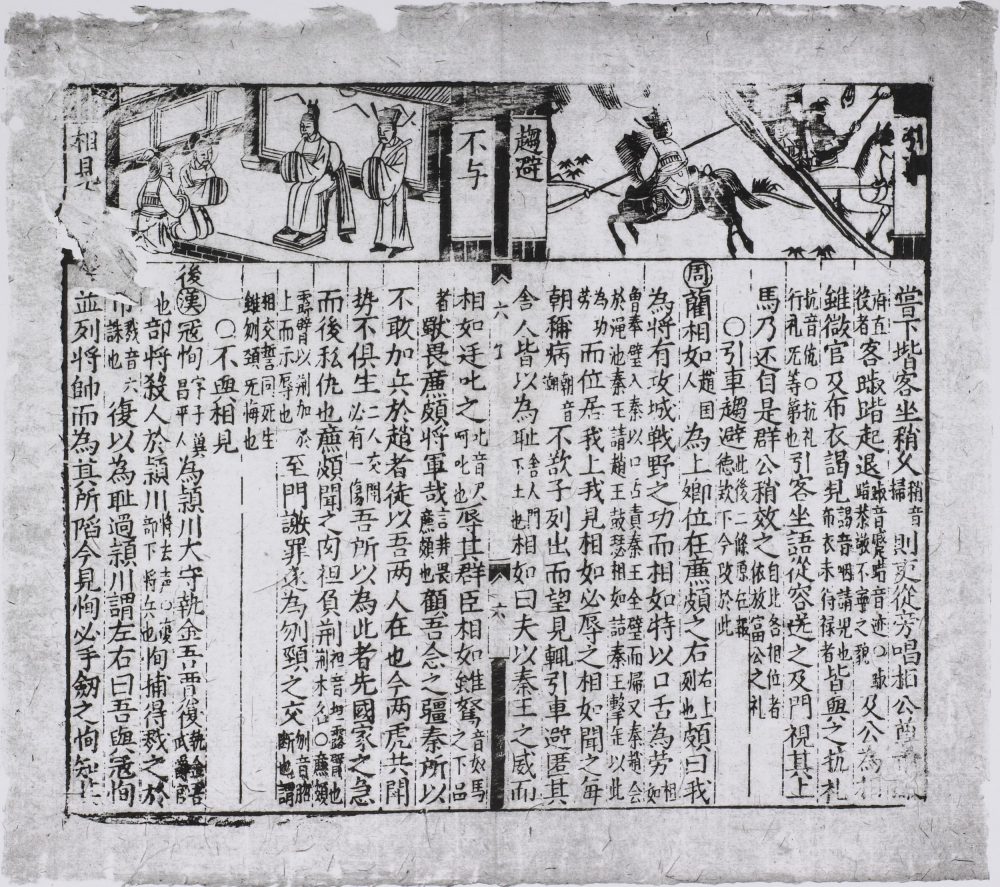 引
趨避
不与
相見
嘗下堦客坐稍乆稍音掃則吏從旁唱相公尊
後者客踧踖起退踧音蹙踖音迹○踧踖恭敬不寧之貌及公為相
雖微官及布衣謁見謁音咽請見也布衣未得祿者皆與之抗礼
抗音伉○抗礼行礼无等第也引客坐語從容送之及門視其上
馬乃还自是群公稍效之自此各相位者依放富公之礼
○引車趨避此後二條原在報德欵下今改於此
周藺相如趙国人為上卿位在廉頗之右右上列也頗曰我
為將有攻城戦野之功而相如特以口舌為劳相如
魯奉璧入秦以口占責秦王全璧而歸又秦趙會於渑池秦王請趙王鼓瑟相如詰秦王擊缶以此
為功劳而位居我上我見相如必辱之相如聞之每
朝稱病朝音潮不欲予列出而望見輒引車避匿其
舍人皆以為耻舍人門下士也相如曰夫以秦王之威而
六
相如廷叱之叱音尺呵叱也辱其群臣相如雖駑音奴馬之下品
者獨畏廉頗將軍哉言非畏廉頗也顧吾念之彊秦所以
不敢加兵於趙者徒以吾两人在也今两虎共闘
势不俱生二人交闘必有一傷吾所以為此者先國家之急
而後私仇也廉頗聞之肉袒負荆袒音坦露臂也荆木名○廉頗
露臂以荆加於上而示辱也至門謝罪遂為刎頸之交刎音脗断也謂
相交誓同死生雖刎頚无悔也
○不與相見
後漢冦恂字子翼昌平人為頴川大守執金吾賈復執金吾武官
也部將殺人於頴川將去声○復部下將兵也恂捕得戮之於
市戮音六誅也復以為耻過頴川謂左右曰吾與冦恂
並列將帥而為其所陷今見恂必手劒之恂知其